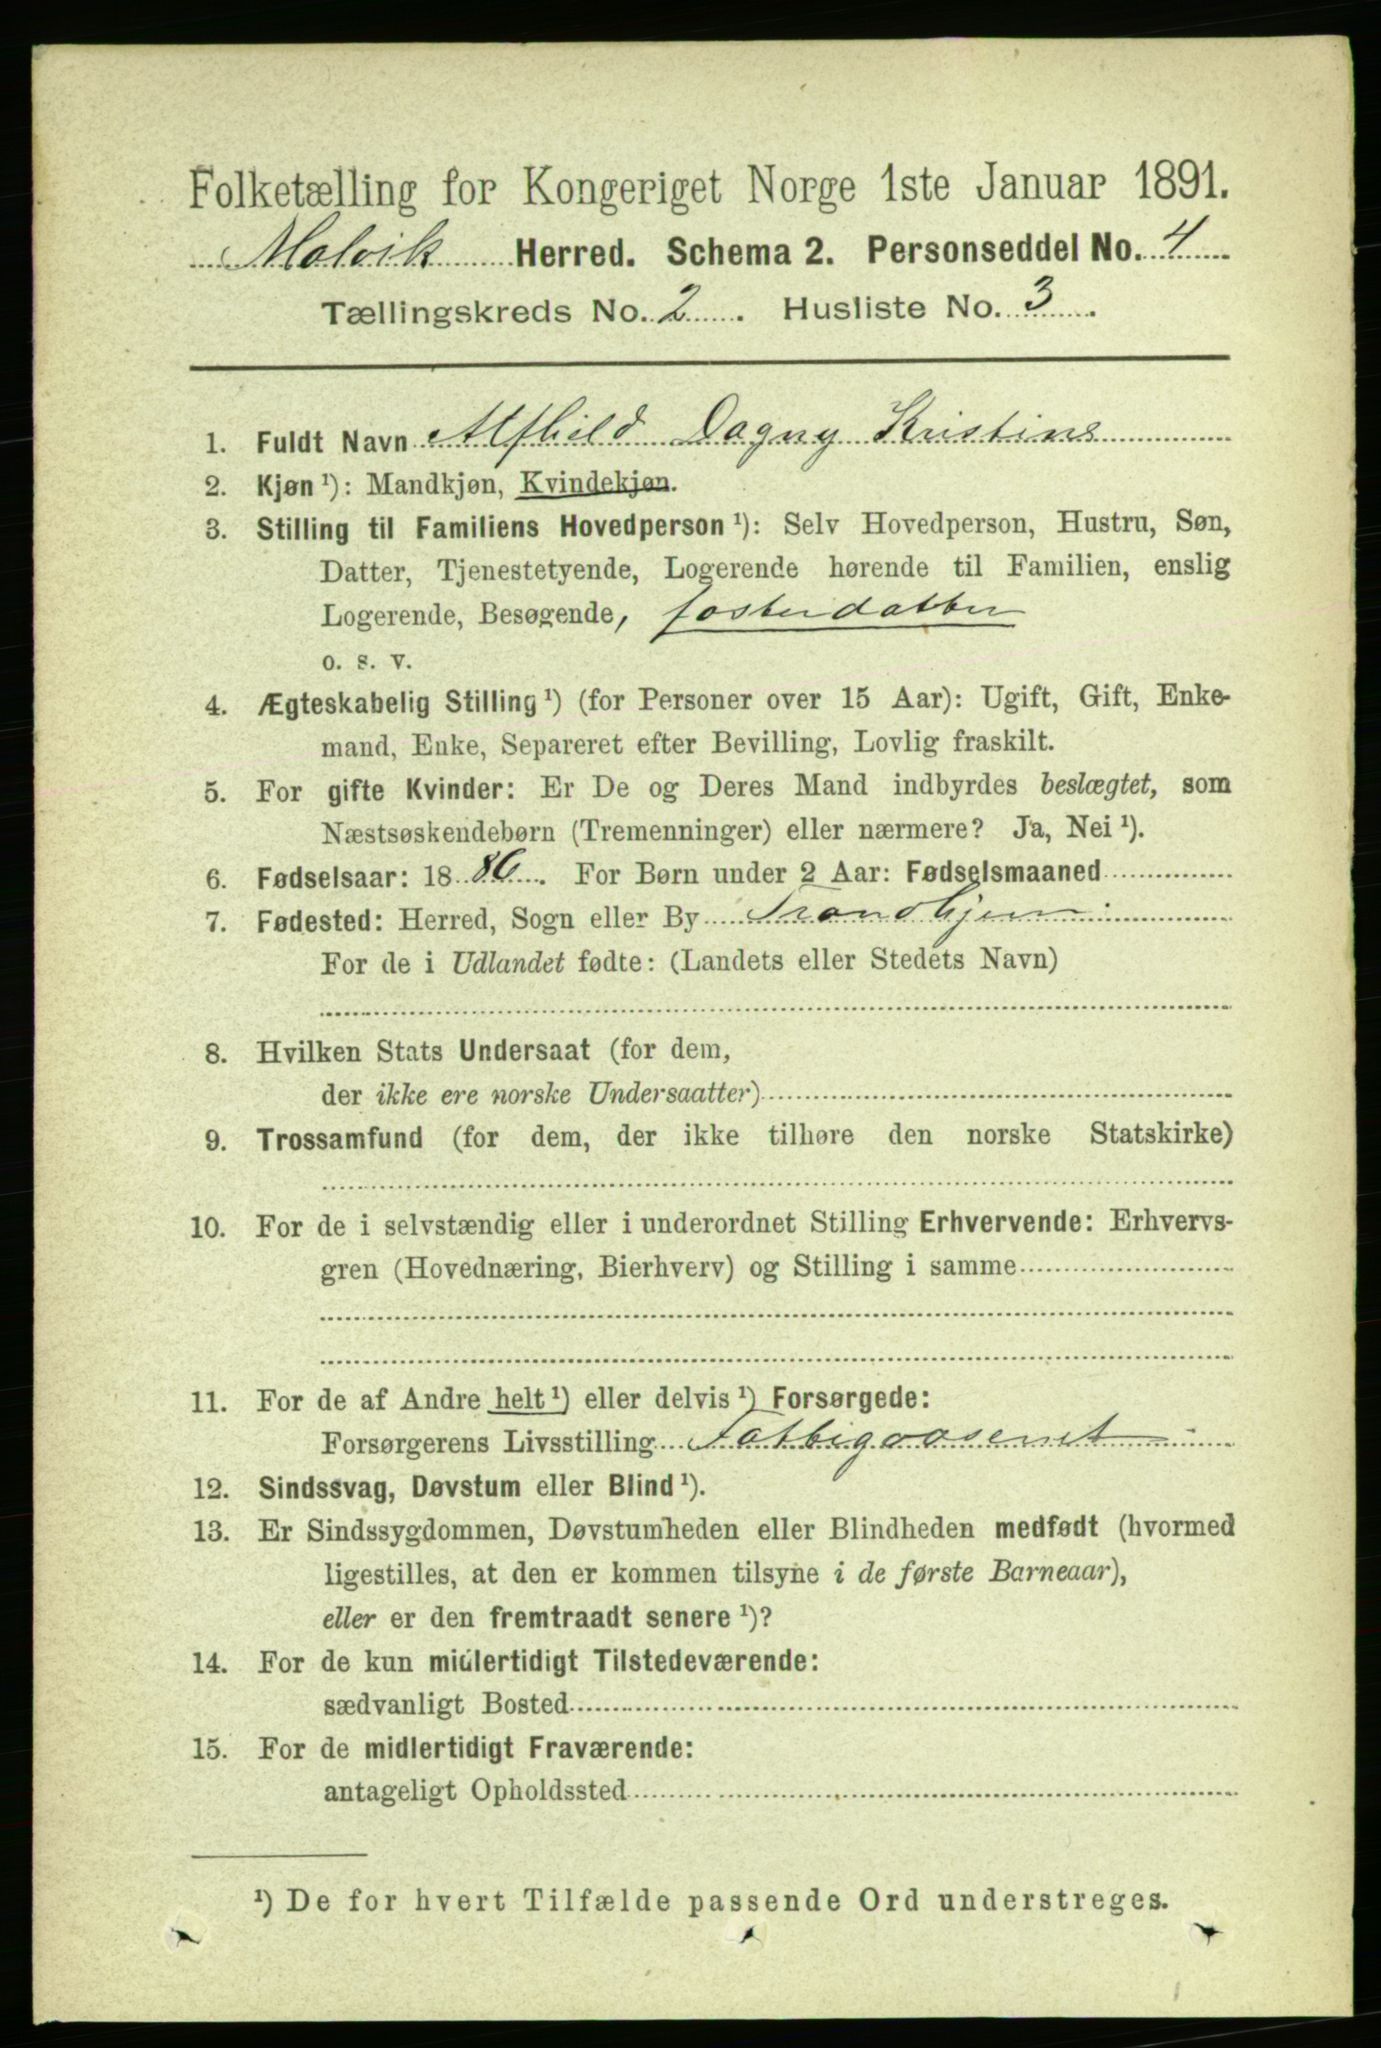 Folketælling for Kongeriget Norge 1ste Januar 1891.
Malvik Herred. Schema 2. Personseddel No. 4
Tællingskreds No. 2. Husliste No. 3.
1. Fuldt Navn Alfhild Dagny Kristine
2. Kjøn ¹): Mandkjøn, Kvindekjøn.
3. Stilling til Familiens Hovedperson ¹): Selv Hovedperson, Hustru, Søn,
Datter, Tjenestetyende, Logerende hørende til Familien, enslig
Logerende, Besøgende, fosterdatter
o. s. v.
4. Ægteskabelig Stilling ¹) (for Personer over 15 Aar): Ugift, Gift, Enke-
mand, Enke, Separeret efter Bevilling, Lovlig fraskilt.
5. For gifte Kvinder: Er De og Deres Mand indbyrdes beslægtet, som
Næstsøskendebørn (Tremenninger) eller nærmere? Ja, Nei ¹).
6. Fødselsaar: 1886. For Børn under 2 Aar: Fødselsmaaned
7. Fødested: Herred, Sogn eller By Trondhjem
For de i Udlandet fødte: (Landets eller Stedets Navn)
8. Hvilken Stats Undersaat (for dem,
der ikke ere norske Undersaatter)
9. Trossamfund (for dem, der ikke tilhøre den norske Statskirke)
10. For de i selvstændig eller i underordnet Stilling Erhvervende: Erhvervs-
gren (Hovednæring, Bierhverv) og Stilling i samme
11. For de af Andre helt ¹) eller delvis ¹) Forsørgede:
Forsørgerens Livsstilling Fattigvæsenet
12. Sindssvag, Døvstum eller Blind ¹).
13. Er Sindssygdommen, Døvstumheden eller Blindheden medfødt (hvormed
ligestilles, at den er kommen tilsyne i de første Barneaar),
eller er den fremtraadt senere ¹)?
14. For de kun midlertidigt Tilstedeværende:
sædvanligt Bosted
15. For de midlertidigt Fraværende:
antageligt Opholdssted
¹) De for hvert Tilfælde passende Ord understreges.